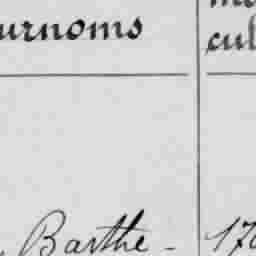 urnoms
cul
Barthe - 17